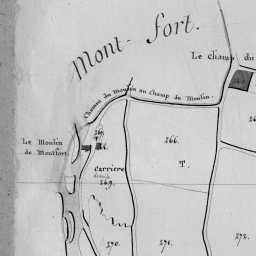 Mont-fort.
Le Champ du
Chemin du Moulin au Champ du Moulin.
Le Moulin
de Montfort
266.
T.
Carrière
269.
270.
271.
272.